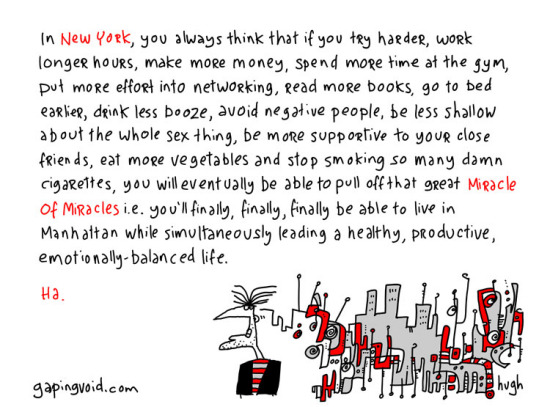 In New York, you always think that if you try harder, work
longer hours, make more money, spend more time at the gym,
put more effort into networking, read more books, go to bed
earlier, drink less booze, avoid negative people, be less shallow
about the whole sex thing, be more supportive to your close
friends, eat more vegetables and stop smoking so many damn
cigarettes, you will eventually be able to pull off that great Miracle
Of Miracles i.e. you'll finally, finally, finally be able to live in
Manhattan while simultaneously leading a healthy, productive,
emotionally-balanced life.
Ha.
gapingvoid.com
hugh